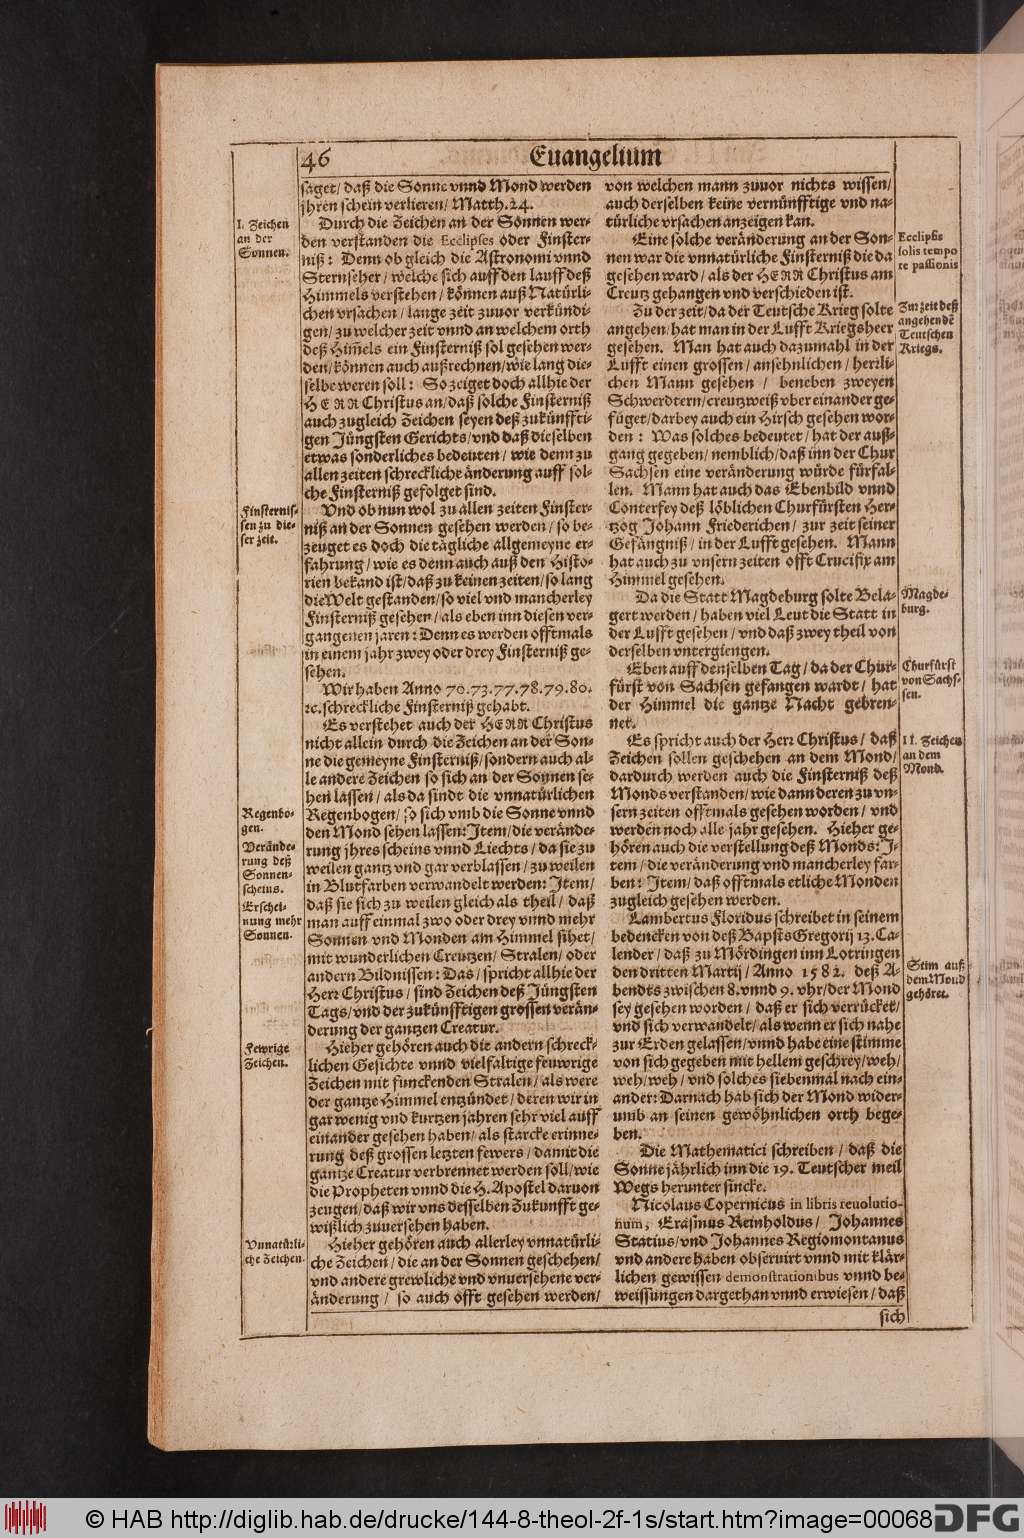 46
Euangelium
saget/ daß die Sonne vnnd Mond werden
jhren schein verlieren/ Matth. 24.
I. Zeichen
an der
Sonnen.
Durch die Zeichen an der Sonnen wer-
den verstanden die Ecclipses oder Finster-
niß: Denn ob gleich die Astronomi vnnd
Sternseher/ welche sich auff den lauff deß
Himmels verstehen/ können auß Natürli-
chen vrsachen/ lange zeit zuuor verkündi-
gen/ zu welcher zeit vnnd an welchem orth
deß Him̃els ein Finsterniß sol gesehen wer-
den/ können auch außrechnen/ wie lang die-
selbe weren soll: So zeiget doch allhie der
HERR Christus an/ daß solche Finsterniß
auch zugleich Zeichen seyen deß zukünffti-
gen Jüngsten Gerichts/ vnd daß dieselben
etwas sonderliches bedeuten/ wie denn zu
allen zeiten schreckliche änderung auff sol-
che Finsterniß gefolget sind.
Finsternis-
sen zu die-
ser zeit.
Vnd ob nun wol zu allen zeiten Finster-
niß an der Sonnen gesehen werden/ so be-
zeuget es doch die tägliche allgemeyne er-
fahrung/ wie es denn auch auß den Histo-
rien bekand ist/ daß zu keinen zeiten/ so lang
die Welt gestanden/ so viel vnd mancherley
Finsterniß gesehen/ als eben inn diesen ver-
gangenen jaren: Denn es werden offtmals
in einem jahr zwey oder drey Finsterniß ge-
sehen.
Wir haben Anno 70. 73. 77. 78. 79. 80.
ꝛc. schreckliche Finsterniß gehabt.
Es verstehet auch der HERR Christus
nicht allein durch die Zeichen an der Son-
ne die gemeyne Finsterniß/ sondern auch al-
le andere Zeichen so sich an der Sonnen se-
hen lassen/ als da sindt die vnnatürlichen
Regenbo-
gen.
Regenbogen/ so sich vmb die Sonne vnnd
den Mond sehen lassen: Item/ die verände-
Verände-
rung deß
Sonnen-
scheins.
rung jhres scheins vnnd Liechts/ da sie zu
weilen gantz vnd gar verblassen/ zu weilen
in Blutfarben verwandelt werden: Item/
Erschei-
nung mehr
Sonnen.
daß sie sich zu weilen gleich als theil/ daß
man auff einmal zwo oder drey vnnd mehr
Sonnen vnd Monden am Himmel sihet/
mit wunderlichen Creutzen/ Stralen/ oder
andern Bildnissen: Das/ spricht allhie der
Herr Christus/ sind Zeichen deß Jüngsten
Tags/ vnd der zukünfftigen grossen verän-
derung der gantzen Creatur.
Fewrige
Zeichen.
Hieher gehören auch die andern schreck-
lichen Gesichte vnnd vielfaltige feuwrige
Zeichen mit funckenden Stralen/ als were
der gantze Himmel entzündet/ deren wir in
gar wenig vnd kurtzen jahren sehr viel auff
einander gesehen haben/ als starcke erinne-
rung deß grossen letzten fewers/ damit die
gantze Creatur verbrennet werden soll/ wie
die Propheten vnnd die H. Apostel daruon
zeugen/ daß wir vns desselben Zukunfft ge-
wißlich zuuersehen haben.
Vnnatürli-
che Zeichen.
Hieher gehören auch allerley vnnatürli-
che Zeichen/ die an der Sonnen geschehen/
vnd andere grewliche vnd vnuersehene ver-
änderung/ so auch offt gesehen werden/
von welchen mann zuuor nichts wissen/
auch derselben keine vernünfftige vnd na-
türliche vrsachen anzeigen kan.
Ecclipsis
solis tempo
re passionis
Eine solche veränderung an der Son-
nen war die vnnatürliche Finsterniß die da
gesehen ward/ als der HERR Christus am
Creutz gehangen vnd verschieden ist.
Zur zeit deß
angehendẽ
Teutschen
Kriegs.
Zu der zeit/ da der Teutsche Krieg solte
angehen/ hat man in der Lufft Kriegsheer
gesehen. Man hat auch dazumahl in der
Lufft einen grossen/ ansehnlichen/ herrli-
chen Mann gesehen/ beneben zweyen
Schwerdtern/ creutzweiß vber einander ge-
füget/ darbey auch ein Hirsch gesehen wor-
den: Was solches bedeutet/ hat der auß-
gang gegeben/ nemblich/ daß inn der Chur
Sachsen eine veränderung würde fürfal-
len. Mann hat auch das Ebenbild vnnd
Conterfey deß löblichen Churfürsten Her-
tzog Johann Friederichen/ zur zeit seiner
Gefängniß/ in der Lufft gesehen. Mann
hat auch zu vnsern zeiten offt Crucifix am
Himmel gesehen.
Magde-
burg.
Da die Statt Magdeburg solte Belä-
gert werden/ haben viel Leut die Statt in
der Lufft gesehen/ vnd daß zwey theil von
derselben vntergiengen.
Churfürst
von Sachs-
sen.
Eben auff denselben Tag/ da der Chur-
fürst von Sachsen gefangen wardt/ hat
der Himmel die gantze Nacht gebren-
net.
II. Zeichen
an dem
Mond.
Es spricht auch der Herr Christus/ daß
Zeichen sollen geschehen an dem Mond/
dardurch werden auch die Finsterniß deß
Monds verstanden/ wie dann deren zu vn-
sern zeiten offtmals gesehen worden/ vnd
werden noch alle jahr gesehen. Hieher ge-
hören auch die verstellung deß Monds: I-
tem/ die veränderung vnd mancherley far-
ben: Item/ daß offtmals etliche Monden
zugleich gesehen werden.
Lambertus Floridus schreibet in seinem
bedencken von deß Bapsts Gregorij 13. Ca-
lender/ daß zu Mördingen inn Lotringen
Stim auß
dem Mond
gehöret.
den dritten Martij/ Anno 1582. deß A-
bendts zwischen 8. vnnd 9. vhr/ der Mond
sey gesehen worden/ daß er sich verrücket/
vnd sich verwandelt/ als wenn er sich nahe
zur Erden gelassen/ vnnd habe eine stimme
von sich gegeben mit hellem geschrey/ weh/
weh/ weh/ vnd solches siebenmal nach ein-
ander: Darnach hab sich der Mond wider-
umb an seinen gewöhnlichen orth bege-
ben.
Die Mathematici schreiben/ daß die
Sonne jährlich inn die 19. Teutscher meil
Wegs herunter sincke.
Nicolaus Copernicus in libris reuolutio-
num, Erasmus Reinholdus/ Johannes
Statius/ vnd Johannes Regiomontanus
vnd andere haben obseruirt vnnd mit klär-
lichen gewissen demonstrationibus vnnd be-
weissungen dargethan vnnd erwiesen/ daß
sich
© HAB http://diglib.hab.de/drucke/144-8-theol-2f-1s/start.htm?image=00068
DFG